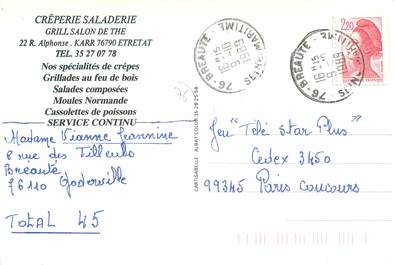 CRÊPERIE SALADERIE
GRILL SALON DE THE
22 R. Alphonse . KARR 76790 ETRETAT
TEL. 35 27 07 78
Nos spécialités de crêpes
Grillades au feu de bois
Salades composées
Moules Normande
Cassolettes de poissons
SERVICE CONTINU
Madame Vianne Jeannine
8 rue des Tilleuls
Breauté
76110 Goderville
TOTAL 45
76 - BREAUTE
SEINE MARITIME
76 - BREAUTE
SEINE MARITIME
2,20
CARTISABELLE
Jeu "Télé Star Plus"
Cedex 3450
99345 Paris Concours